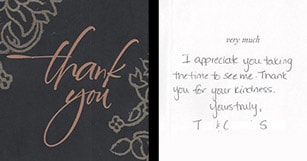 thank
you
very much
I appreciate you taking
the time to see me. Thank
you for your kindness.
Yours truly,
T & C S